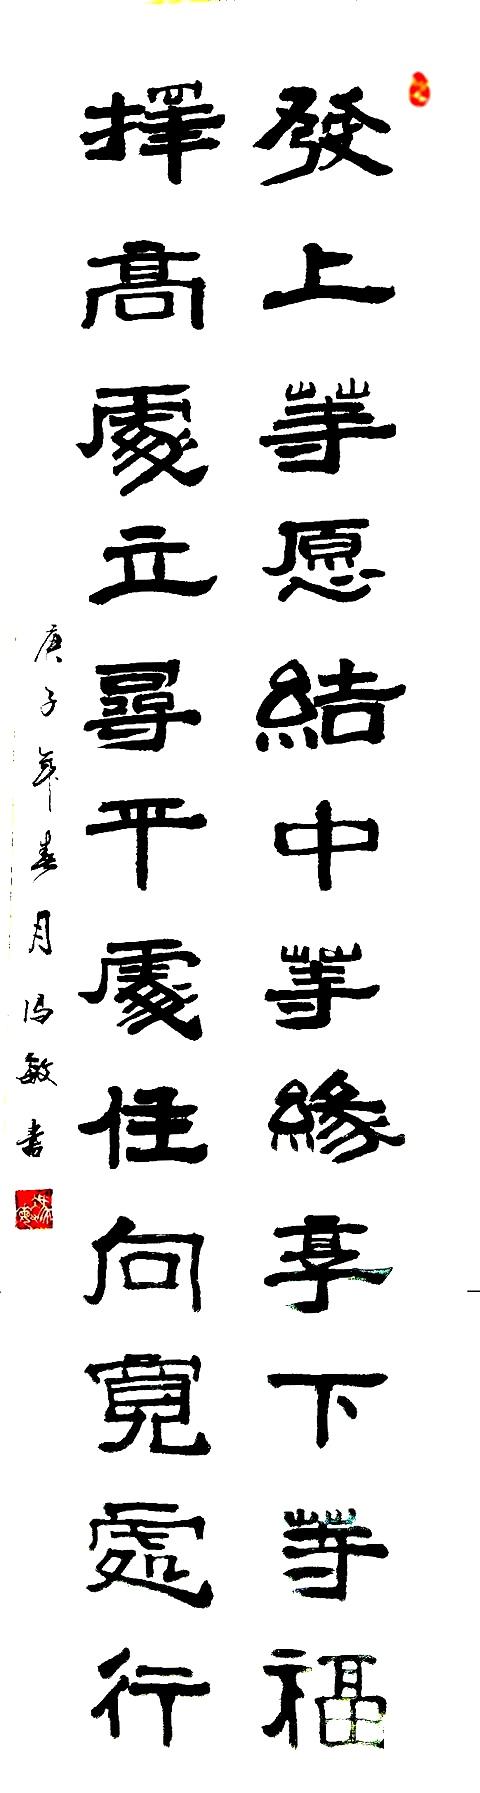 發上等愿結中等緣享下等福
擇高處立尋平處住向寬處行
庚子年春月馮敏書